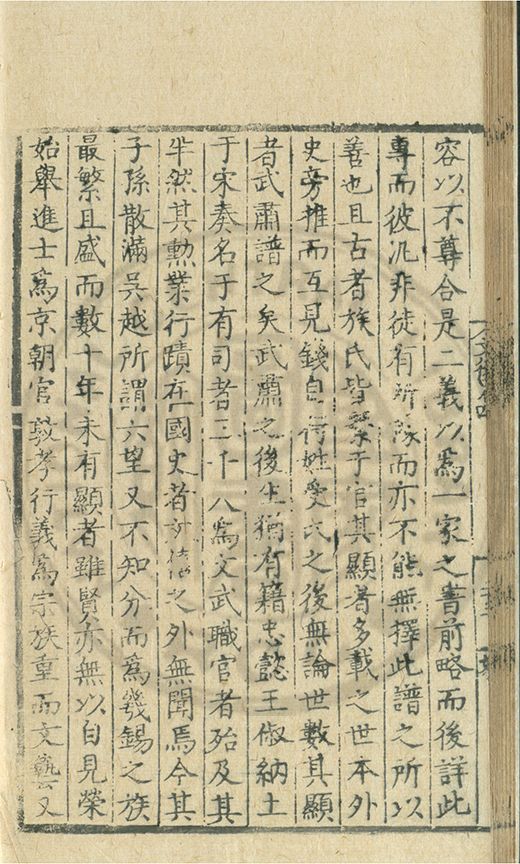 容以不尊合是二義以為一家之書前略而後詳此
專而彼汎非徒有所隊而亦不能無擇此譜之所以
善也且古者族氏皆繫于官其顯者多載之世本外
史旁推而互見錢自得姓受氏之後無論世數其顯
者武肅譜之矣武肅之後生猶有籍忠懿王俶納土
于宋奏名于有司者三千八為文武職官者殆及其
半然其勲業行蹟在國史者之外無聞焉今其
子孫散滿吳越所謂六望又不知分而為幾錫之族
最繁且盛而數十年未有顯者雖賢亦無以自見榮
始舉進士為京朝官敦孝行義為宗族重而文藝又